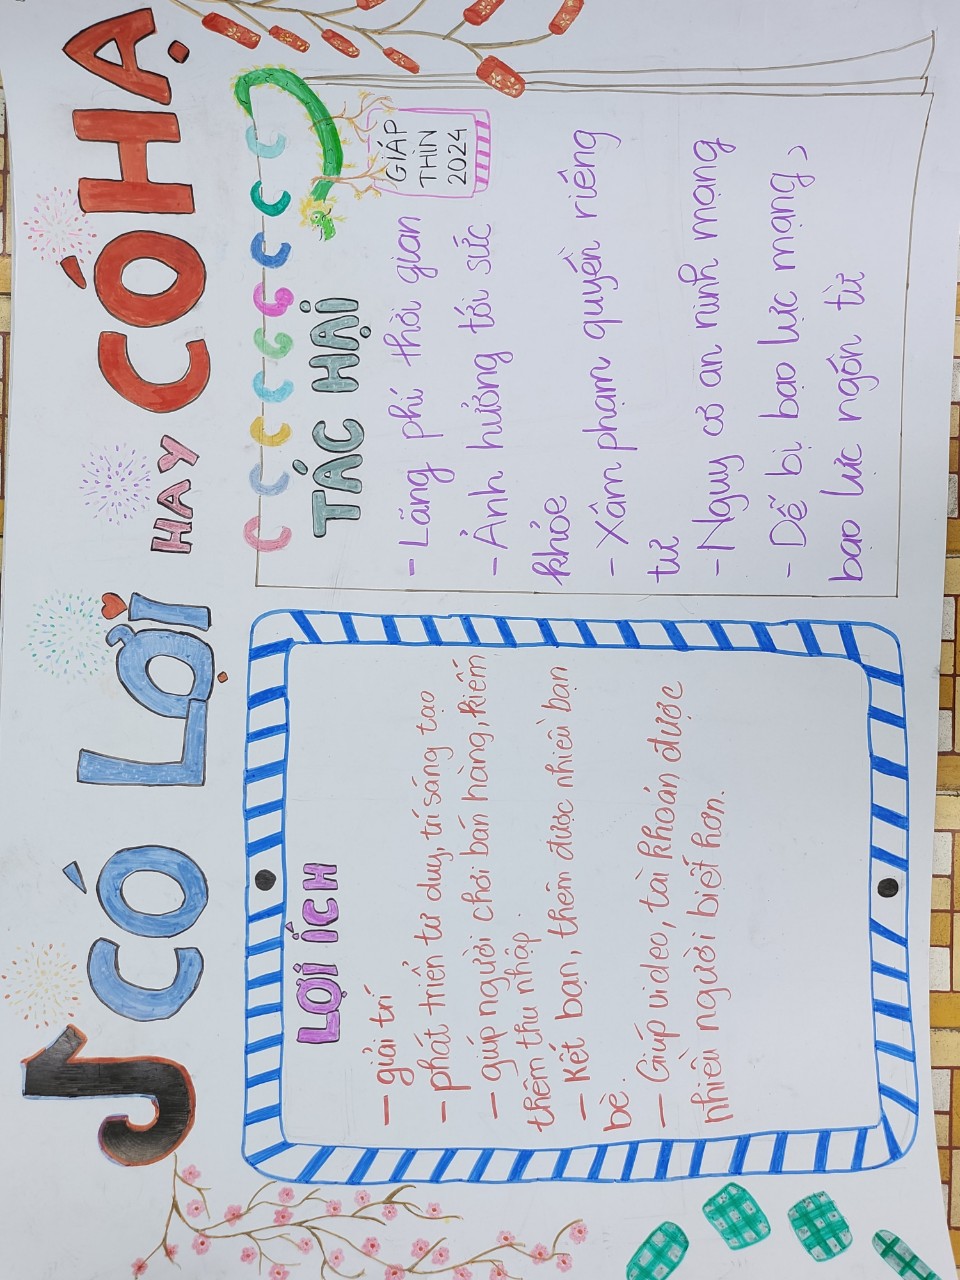 CÓ LỢI HAY CÓ HẠ
LỢI ÍCH
- giải trí
- phát triển tư duy, trí sáng tạo
- giúp người chơi bán hàng, kiếm
thêm thu nhập.
- Kết bạn, thêm được nhiều bạn
bè.
- Giúp video, tài khoản được
nhiều người biết hơn.
TÁC HẠI
- Lãng phí thời gian
- Ảnh hưởng tới sức
khỏe
- Xâm phạm quyền riêng
tư
- Nguy cơ an ninh mạng
- Dễ bị bạo lực mạng,
bạo lực ngôn từ
GIÁP
THÌN
2024